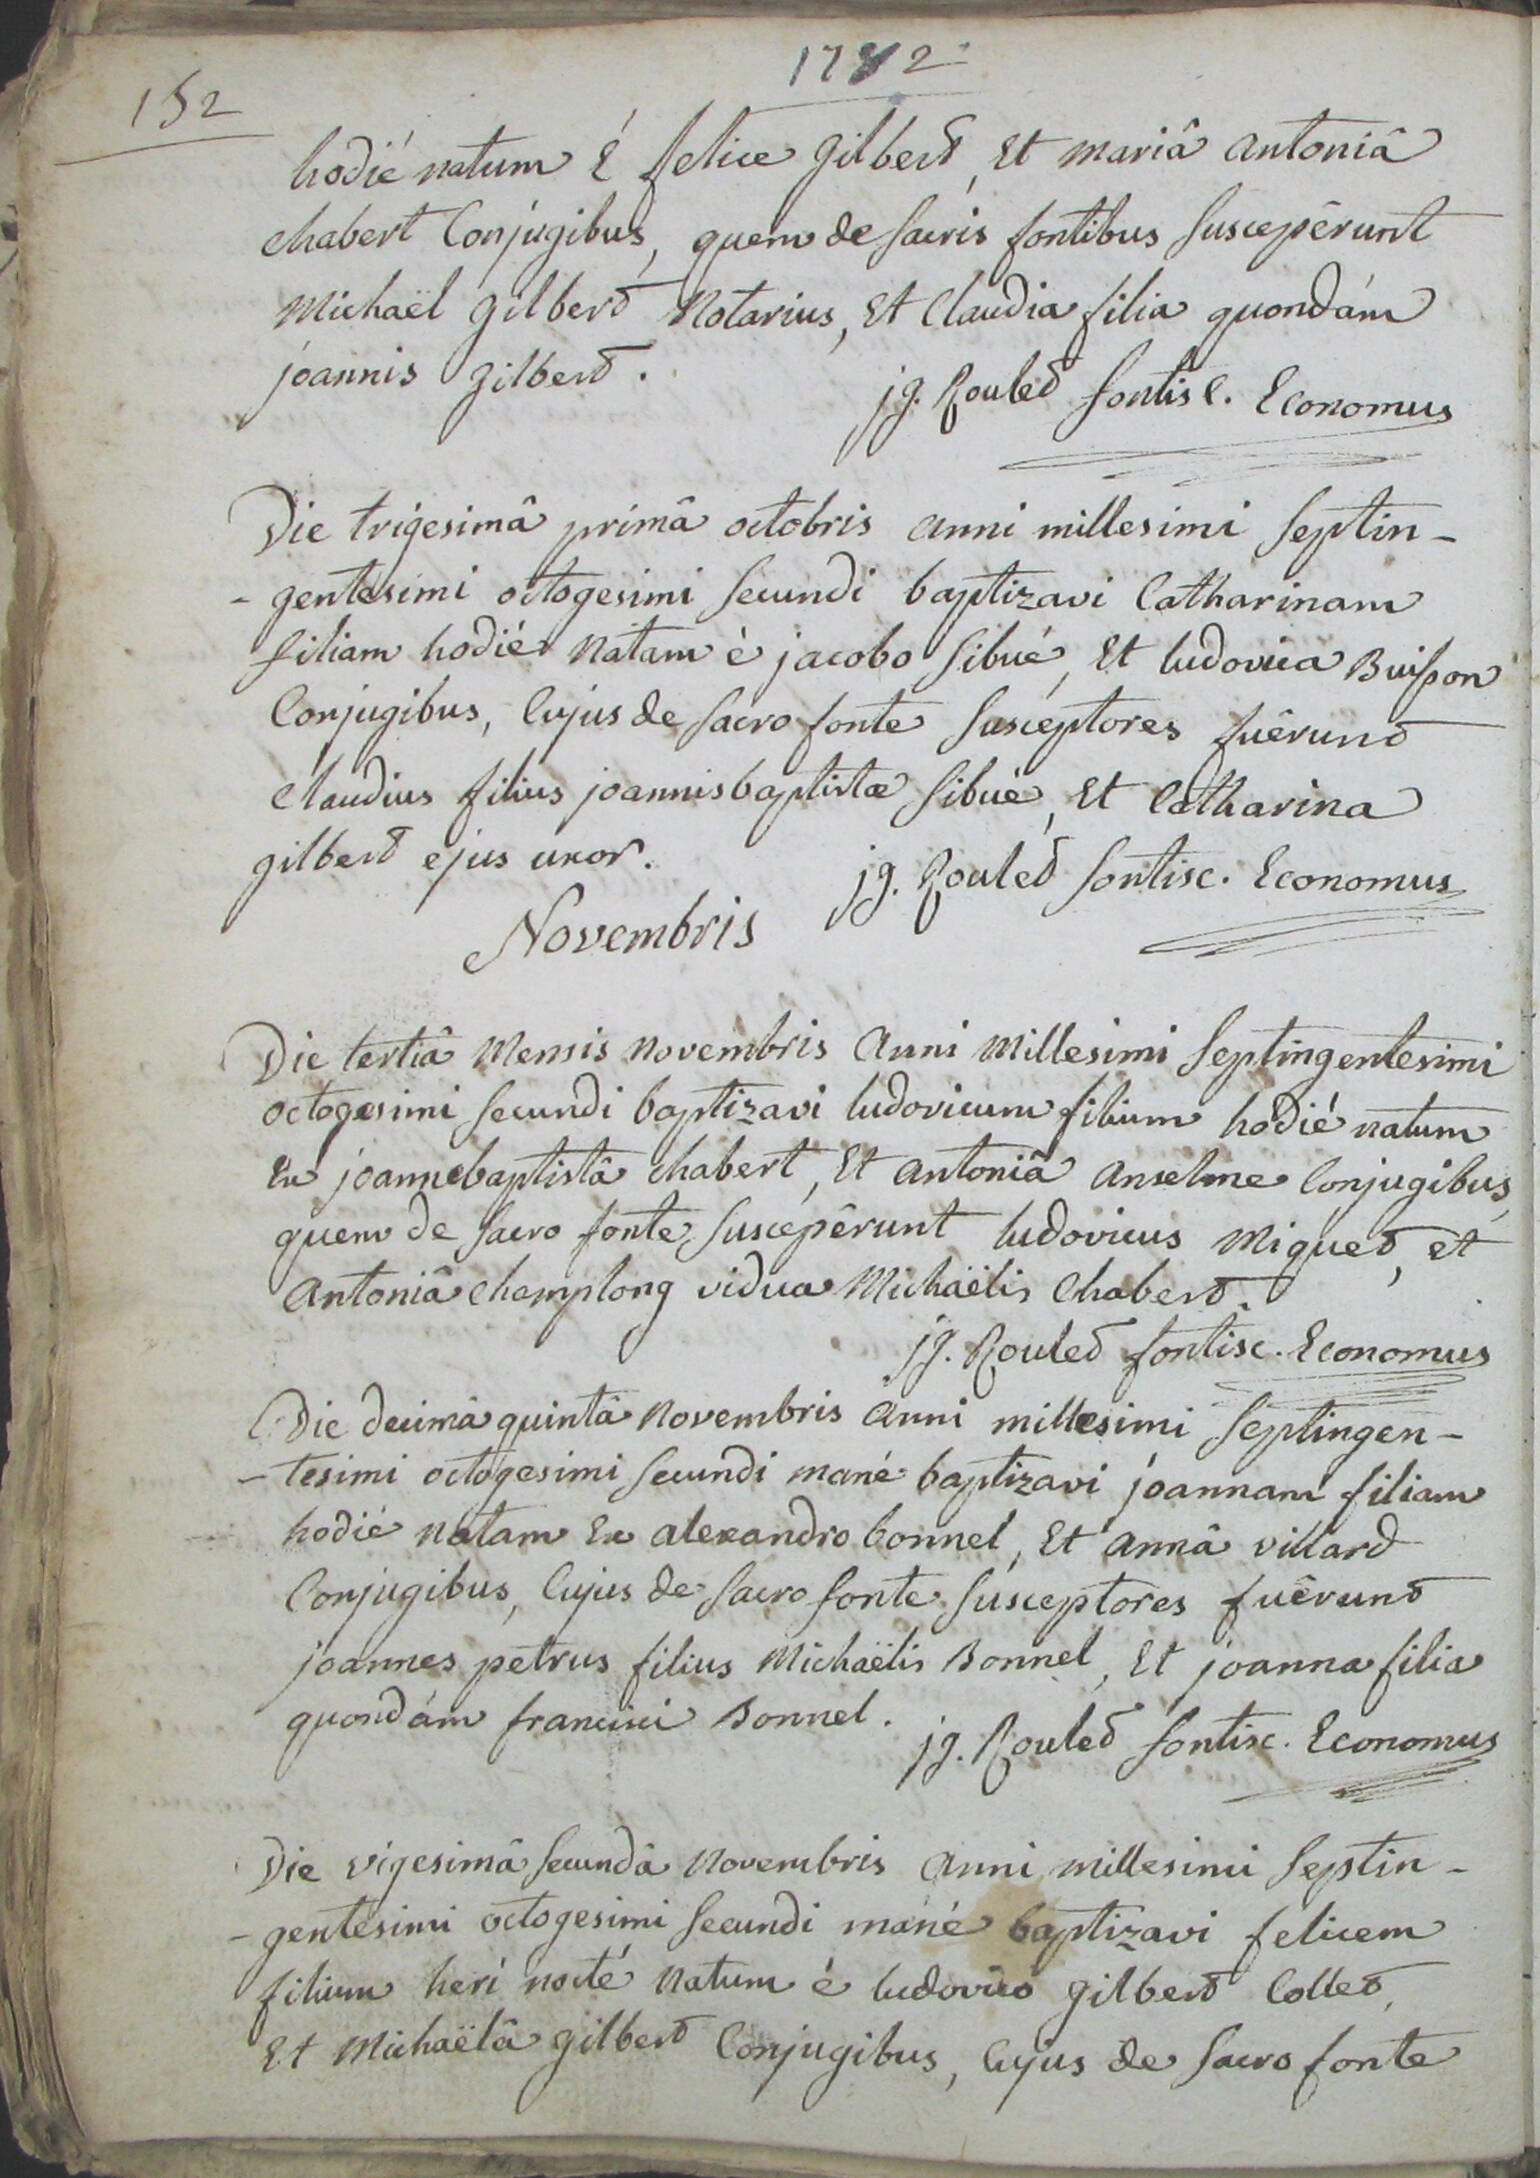 1782
152
hodié natum é felice gilbert, et mariâ antoniâ
chabert Conjugibus, quem de sacris fontibus susceperûnt
Michaël gilbert Notarius, et Claudia filia quondám
joannis gilbert.
jg. Roulet fontisc. Economus
Die trigesimâ primâ octobris anni millesimi septin-
-gentesimi octogesimi secundi baptizavi Catharinam
filiam hodié natam è jacobo sibué, et ludovica Buisson
Conjugibus, Cujus de sacro fonte susceptores fuêrunt
Claudius filius joannisbaptistæ sibué, et Catharina
gilbert ejus uxor.
jg. Roulet fontisc. Economus
Novembris
Die tertiâ Mensis novembris anni Millesimi septingentesimi
octogesimi secundi baptizavi ludovicum filium hodié natum
Ex joannebaptistâ chabert, et antoniâ anselme Conjugibus,
quem de sacro fonte suscepêrunt ludovicus Miquet, et
antoniâ champlong vidua Michaëlis Chabert.
jg. Roulet fontisc. Economus
Die decimâ quintâ novembris anni millesimi septingen-
-tesimi octogesimi secundi mané baptizavi joannam filiam
hodié natam Ex alexandro bonnel, et annâ villard
Conjugibus, Cujus de sacro fonte susceptores fuêrunt
joannes petrus filius Michaëlis Bonnel, et joanna filia
quondám francisci Bonnel.
jg. Roulet fontisc. Economus
Die vigesimâ secundâ novembris anni millesimi septin-
-gentesimi octogesimi secundi mané baptizavi felicem
filium heri nocté natum é ludovico gilbert Collet,
Et Michaëlâ gilbert Conjugibus, Cujus de sacro fonte